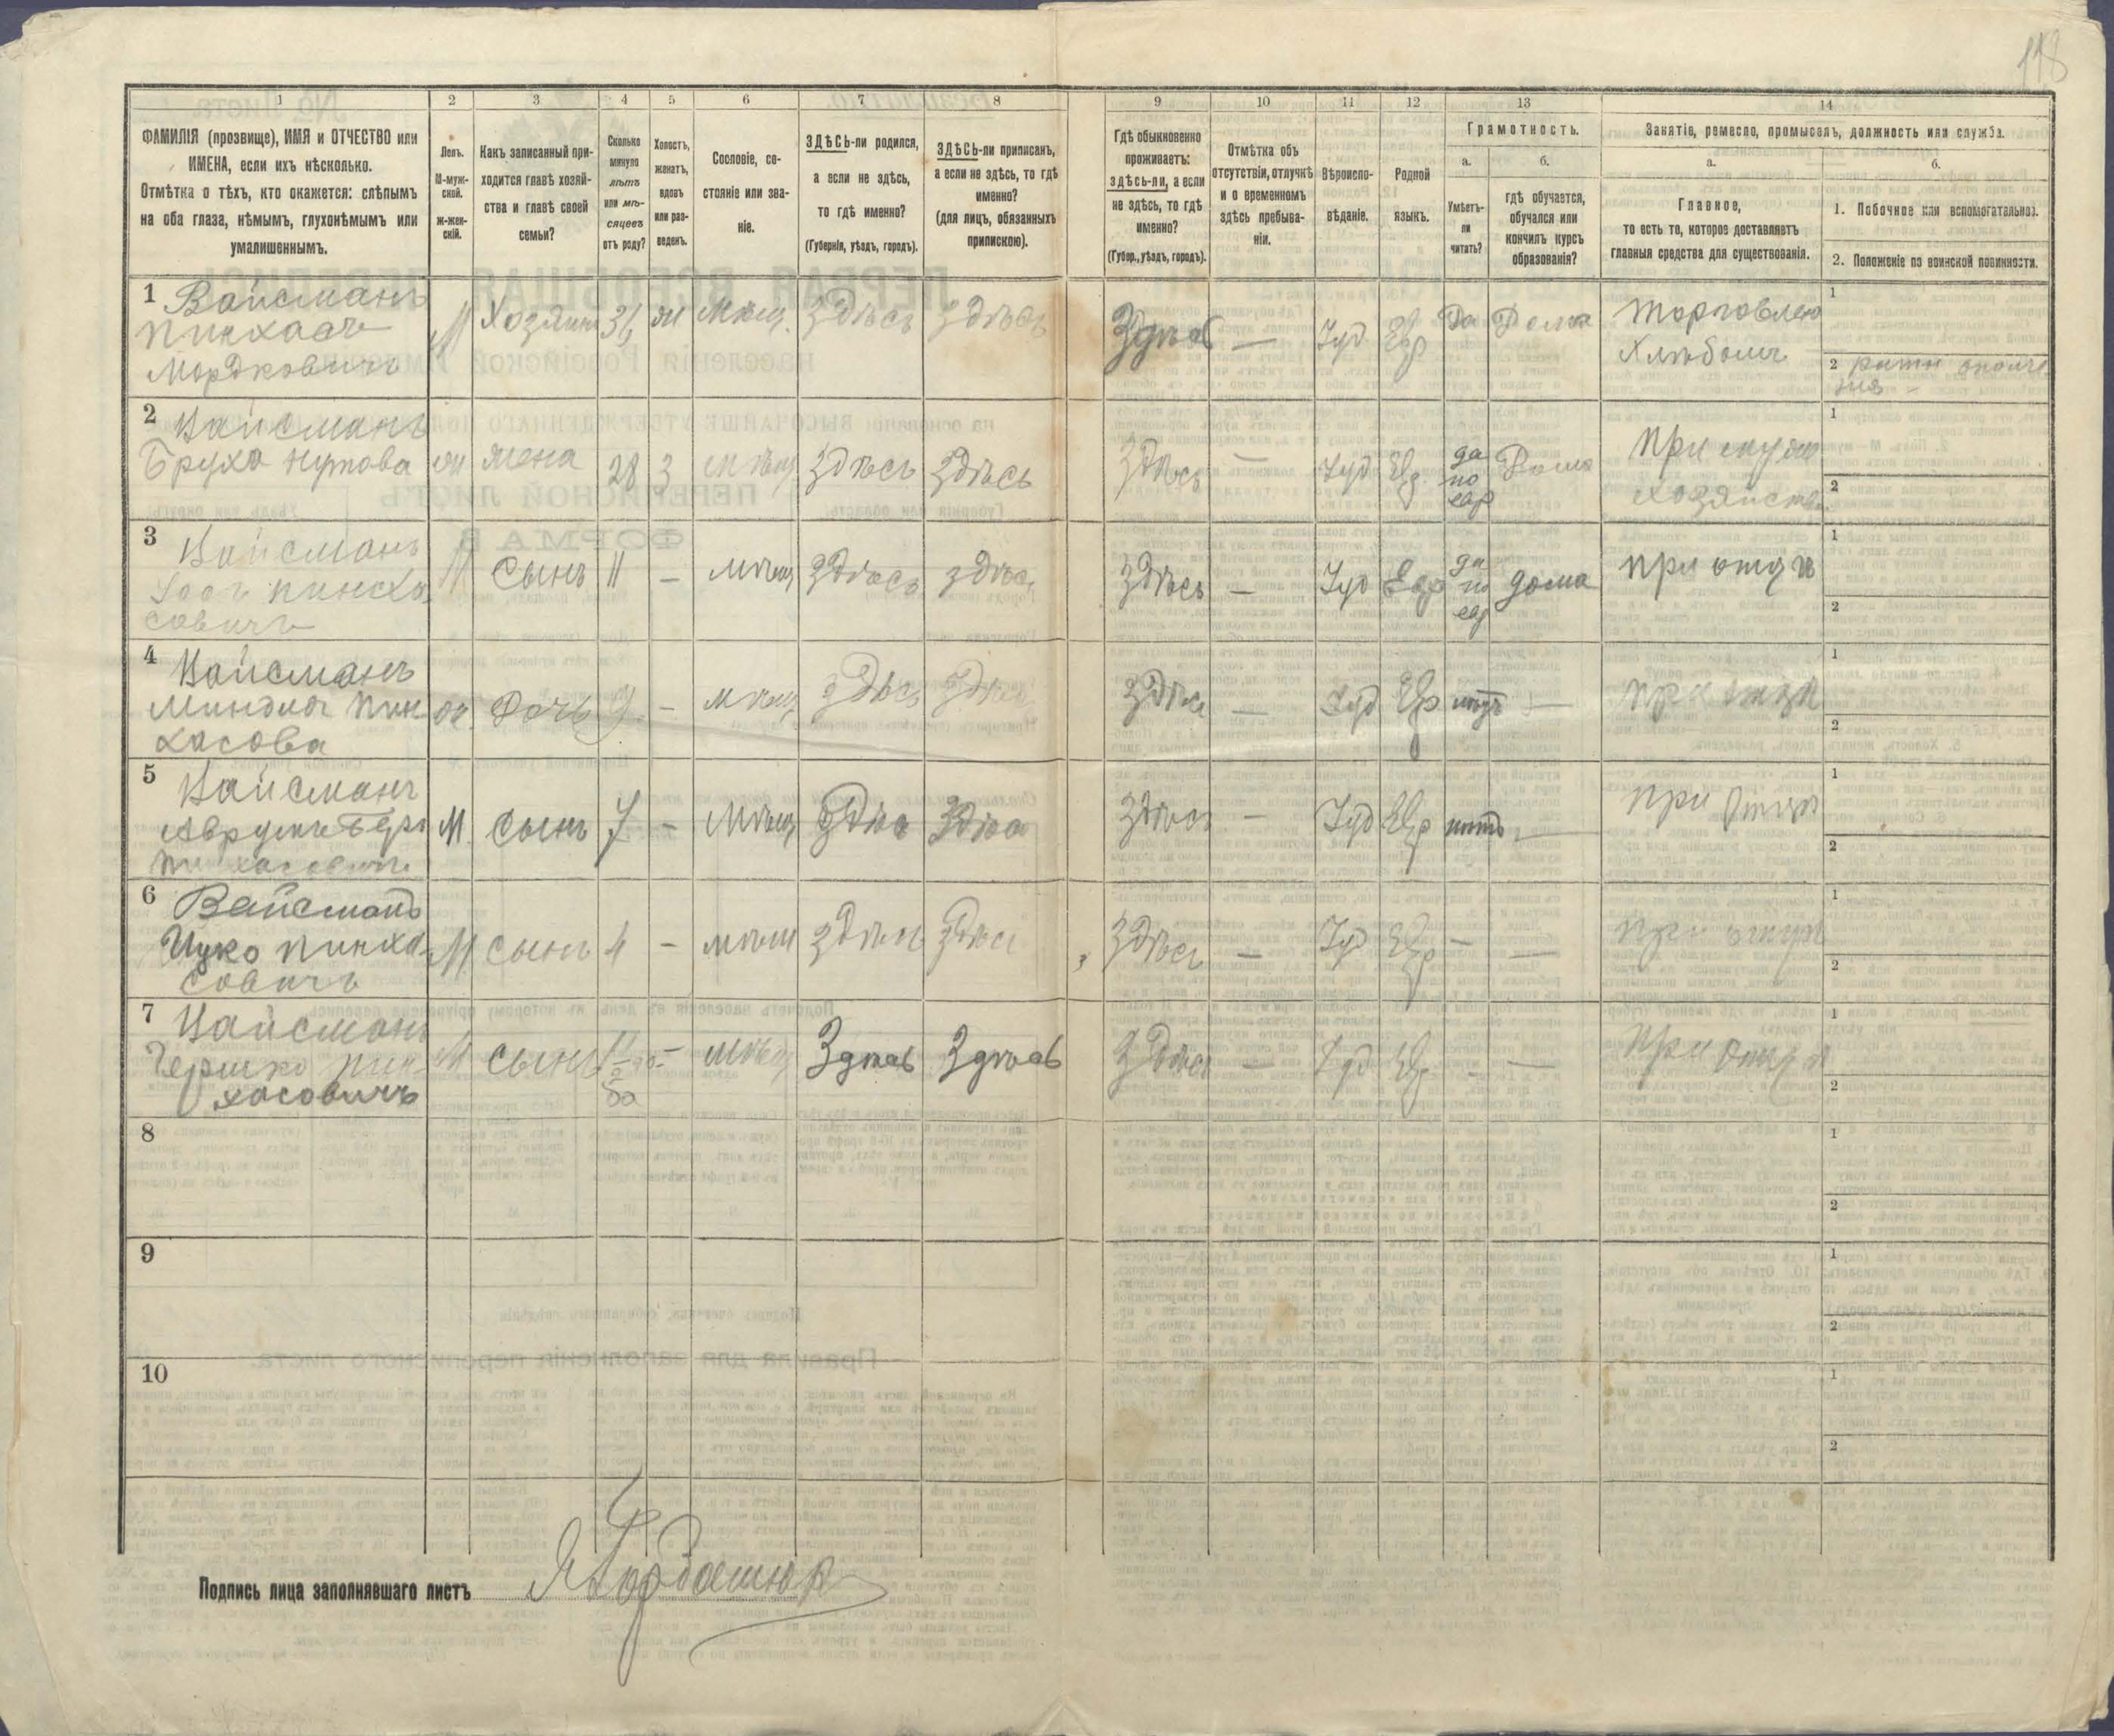 118
1 2 3 4 5 6 7 8 9 10 11 12 13 14
ФАМИЛІЯ (прозвище), ИМЯ и ОТЧЕСТВО или
ИМЕНА, если ихъ нѣсколько.
Отмѣтка о тѣхъ, кто окажется: слѣпымъ
на оба глаза, нѣмымъ, глухонѣмымъ или
умалишеннымъ.
Полъ.
М-муж-
ской.
ж-жен-
скій.
Какъ записанный при-
ходится главѣ хозяй-
ства и главѣ своей
семьи?
Сколько
минуло
лѣтъ
или мѣ-
сяцевъ
отъ роду?
Холостъ,
женатъ,
вдовъ
или раз-
веденъ.
Сословіе, со-
стояніе или зва-
ніе.
ЗДѢСЬ-ли родился,
а если не здѣсь,
то гдѣ именно?
(Губернія, уѣздъ, городъ).
ЗДѢСЬ-ли приписанъ,
а если не здѣсь, то гдѣ
именно?
(для лицъ, обязанныхъ
припискою).
Гдѣ обыкновенно
проживаетъ:
здѣсь-ли, а если
не здѣсь, то гдѣ
именно?
(Губер., уѣздъ, городъ).
Отмѣтка объ
отсутствіи, отлучкѣ
и о временномъ
здѣсь пребыва-
ніи.
Вѣроиспо-
вѣданіе.
Родной
языкъ.
Грамотность.
а.
Умѣетъ-
ли
читать?
б.
гдѣ обучается,
обучался или
кончилъ курсъ
образованія?
Занятіе, ремесло, промыселъ, должность или служба.
а.
Главное,
то есть то, которое доставляетъ
главныя средства для существованія.
б.
1. Побочное или вспомогательное.
2. Положеніе по воинской повинности.
1 Вайсманъ
Пинхасъ
Мордковичъ
М Хозяинъ мѣщ. здѣсь здѣсь
Здѣсь — Іуд Евр Да Дома
Торговлею
Хлѣбомъ
1
2
2 Вайсманъ
Бруха
жена 28 мѣщ здѣсь здѣсь
здѣсь — Іуд Евр
да
по
евр
Дома
При
хозяйств
1
2
3 Вайсманъ
Пинха
совичъ
М сынъ 11 — мѣщ здѣсь здѣсь
здѣсь — Іуд Евр
да
по
евр
дома
при отцѣ
1
2
4 Вайсманъ
Пин
хасова
Дочь 9 — мѣщ здѣсь здѣсь
здѣсь — Іуд Евр нѣтъ —
при отцѣ
1
2
5 Вайсманъ
Пинхасовичъ
М. сынъ 7 — мѣщ здѣсь здѣсь
здѣсь — Іуд Евр нѣтъ —
при Отцѣ
1
2
6 Вайсманъ
Ицко Пинха-
совичъ
М сынъ 4 — мѣщ здѣсь здѣсь
здѣсь — Іуд Евр — —
при отцѣ
1
2
7 Вайсманъ
Гершко Пин-
хасовичъ
М сынъ — мѣщ Здѣсь Здѣсь
здѣсь — Іуд Евр — —
при Отцѣ
1
2
8
1
2
9
1
2
10
1
2
Подпись лица заполнявшаго листъ